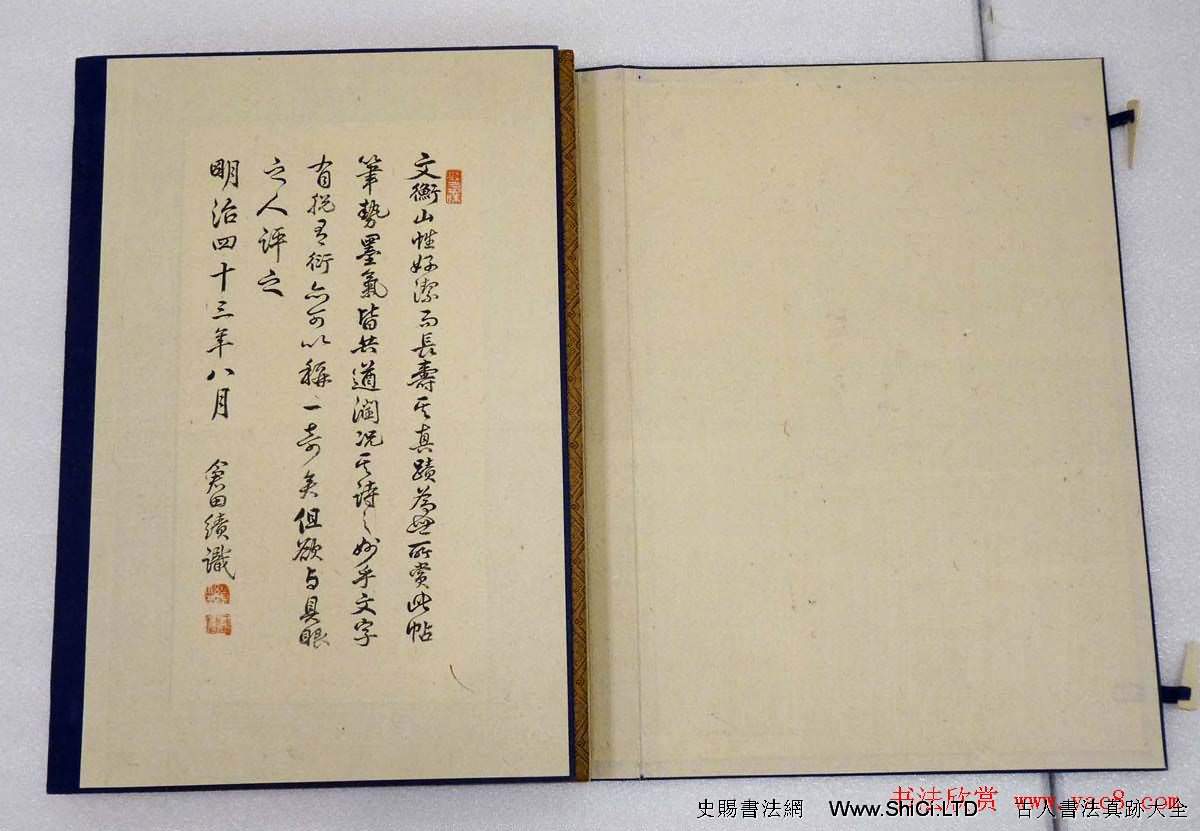 文衡山性好潔而長壽其真蹟為世所賞此帖
筆勢墨氣皆共遒潤況其詩之妙乎文字
有挩有衍亦可以稱一奇矣但欲与具眼
之人評之
明治四十三年八月 倉田績識
书法欣赏 www.yac8.com
史賜書法網 Www.ShiCi.LTD 古人書法真跡大全